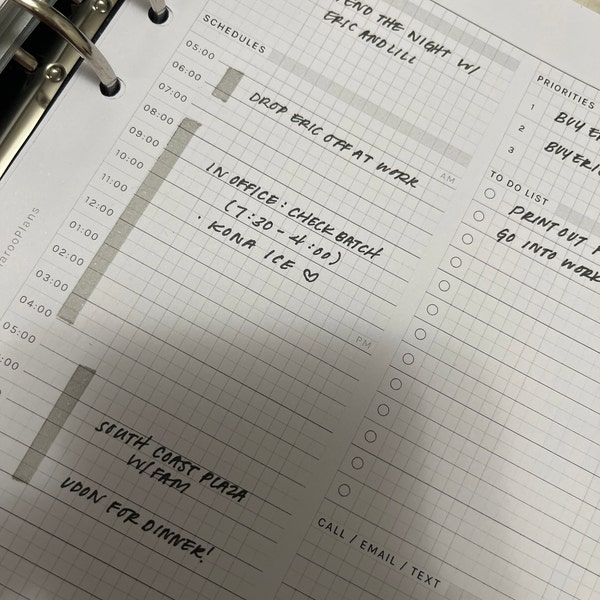 END THE NIGHT W/
ERIC AND LILL
SCHEDULES
05:00
06:00
07:00
08:00
09:00
10:00
11:00
12:00
01:00
02:00
03:00
04:00
05:00
:00
DROP ERIC OFF AT WORK
AM
IN OFFICE: CHECK BATCH
(7:30-4:00)
· KONA ICE ♡
PM
SOUTH COAST PLAZA
W/ FAM
UDON FOR DINNER!
PRIORITIES
1 BUY
2 BUY ERIC
3
TO DO LIST
PRINT OUT
GO INTO WORK
CALL / EMAIL / TEXT
arooPlans